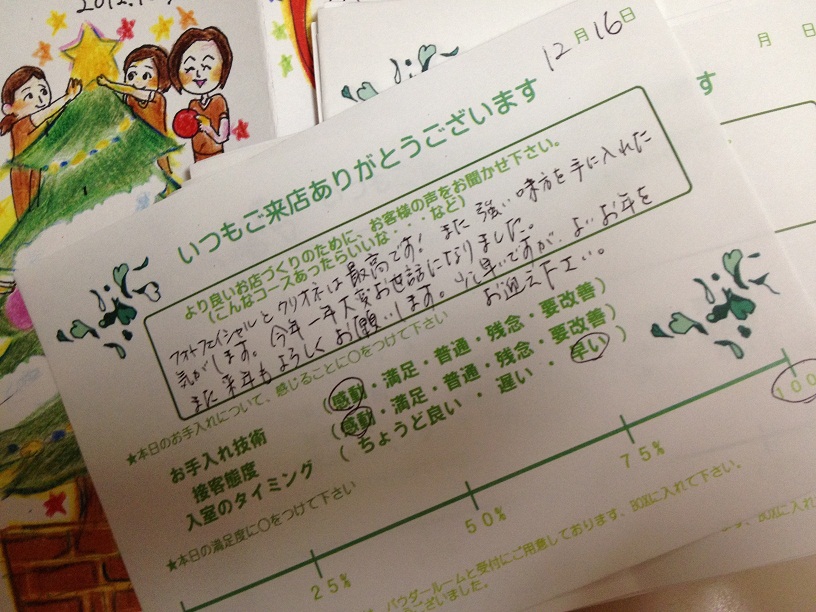 2012.
12月16日
月 日
いつもご来店ありがとうございます
す
より良いお店づくりのために、お客様の声をお聞かせ下さい。
(こんなコースあったらいいな・・・など)
フォトフェイシャルとクリオネは最高です! また 強い味方を手に入れた
気がします。今年一年大変お世話になりました。
また来年もよろしくお願いします。少し早いですが、よいお年を
お迎え下さい。
★本日のお手入れについて、感じることに○をつけて下さい
お手入れ技術 (感動・満足・普通・残念・要改善)
接客態度 (感動・満足・普通・残念・要改善)
入室のタイミング (ちょうど良い・遅い・早い)
★本日の満足度に○をつけて下さい
25% 50% 75% 100
パウダールームと受付にご用意しております、BOXに入れて下さい。
ございました。
BOXに入れ